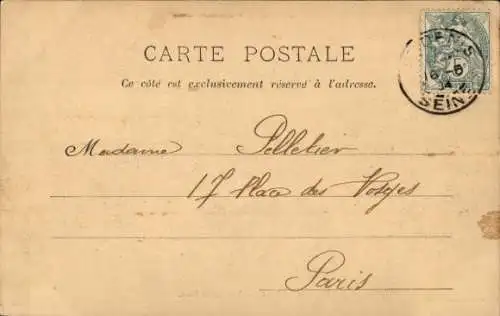 CARTE POSTALE
Ce côté est exclusivement réservé à l'adresse.
Madame Pelletier
17 Place des Vosges
Paris
DENIS
SEINE